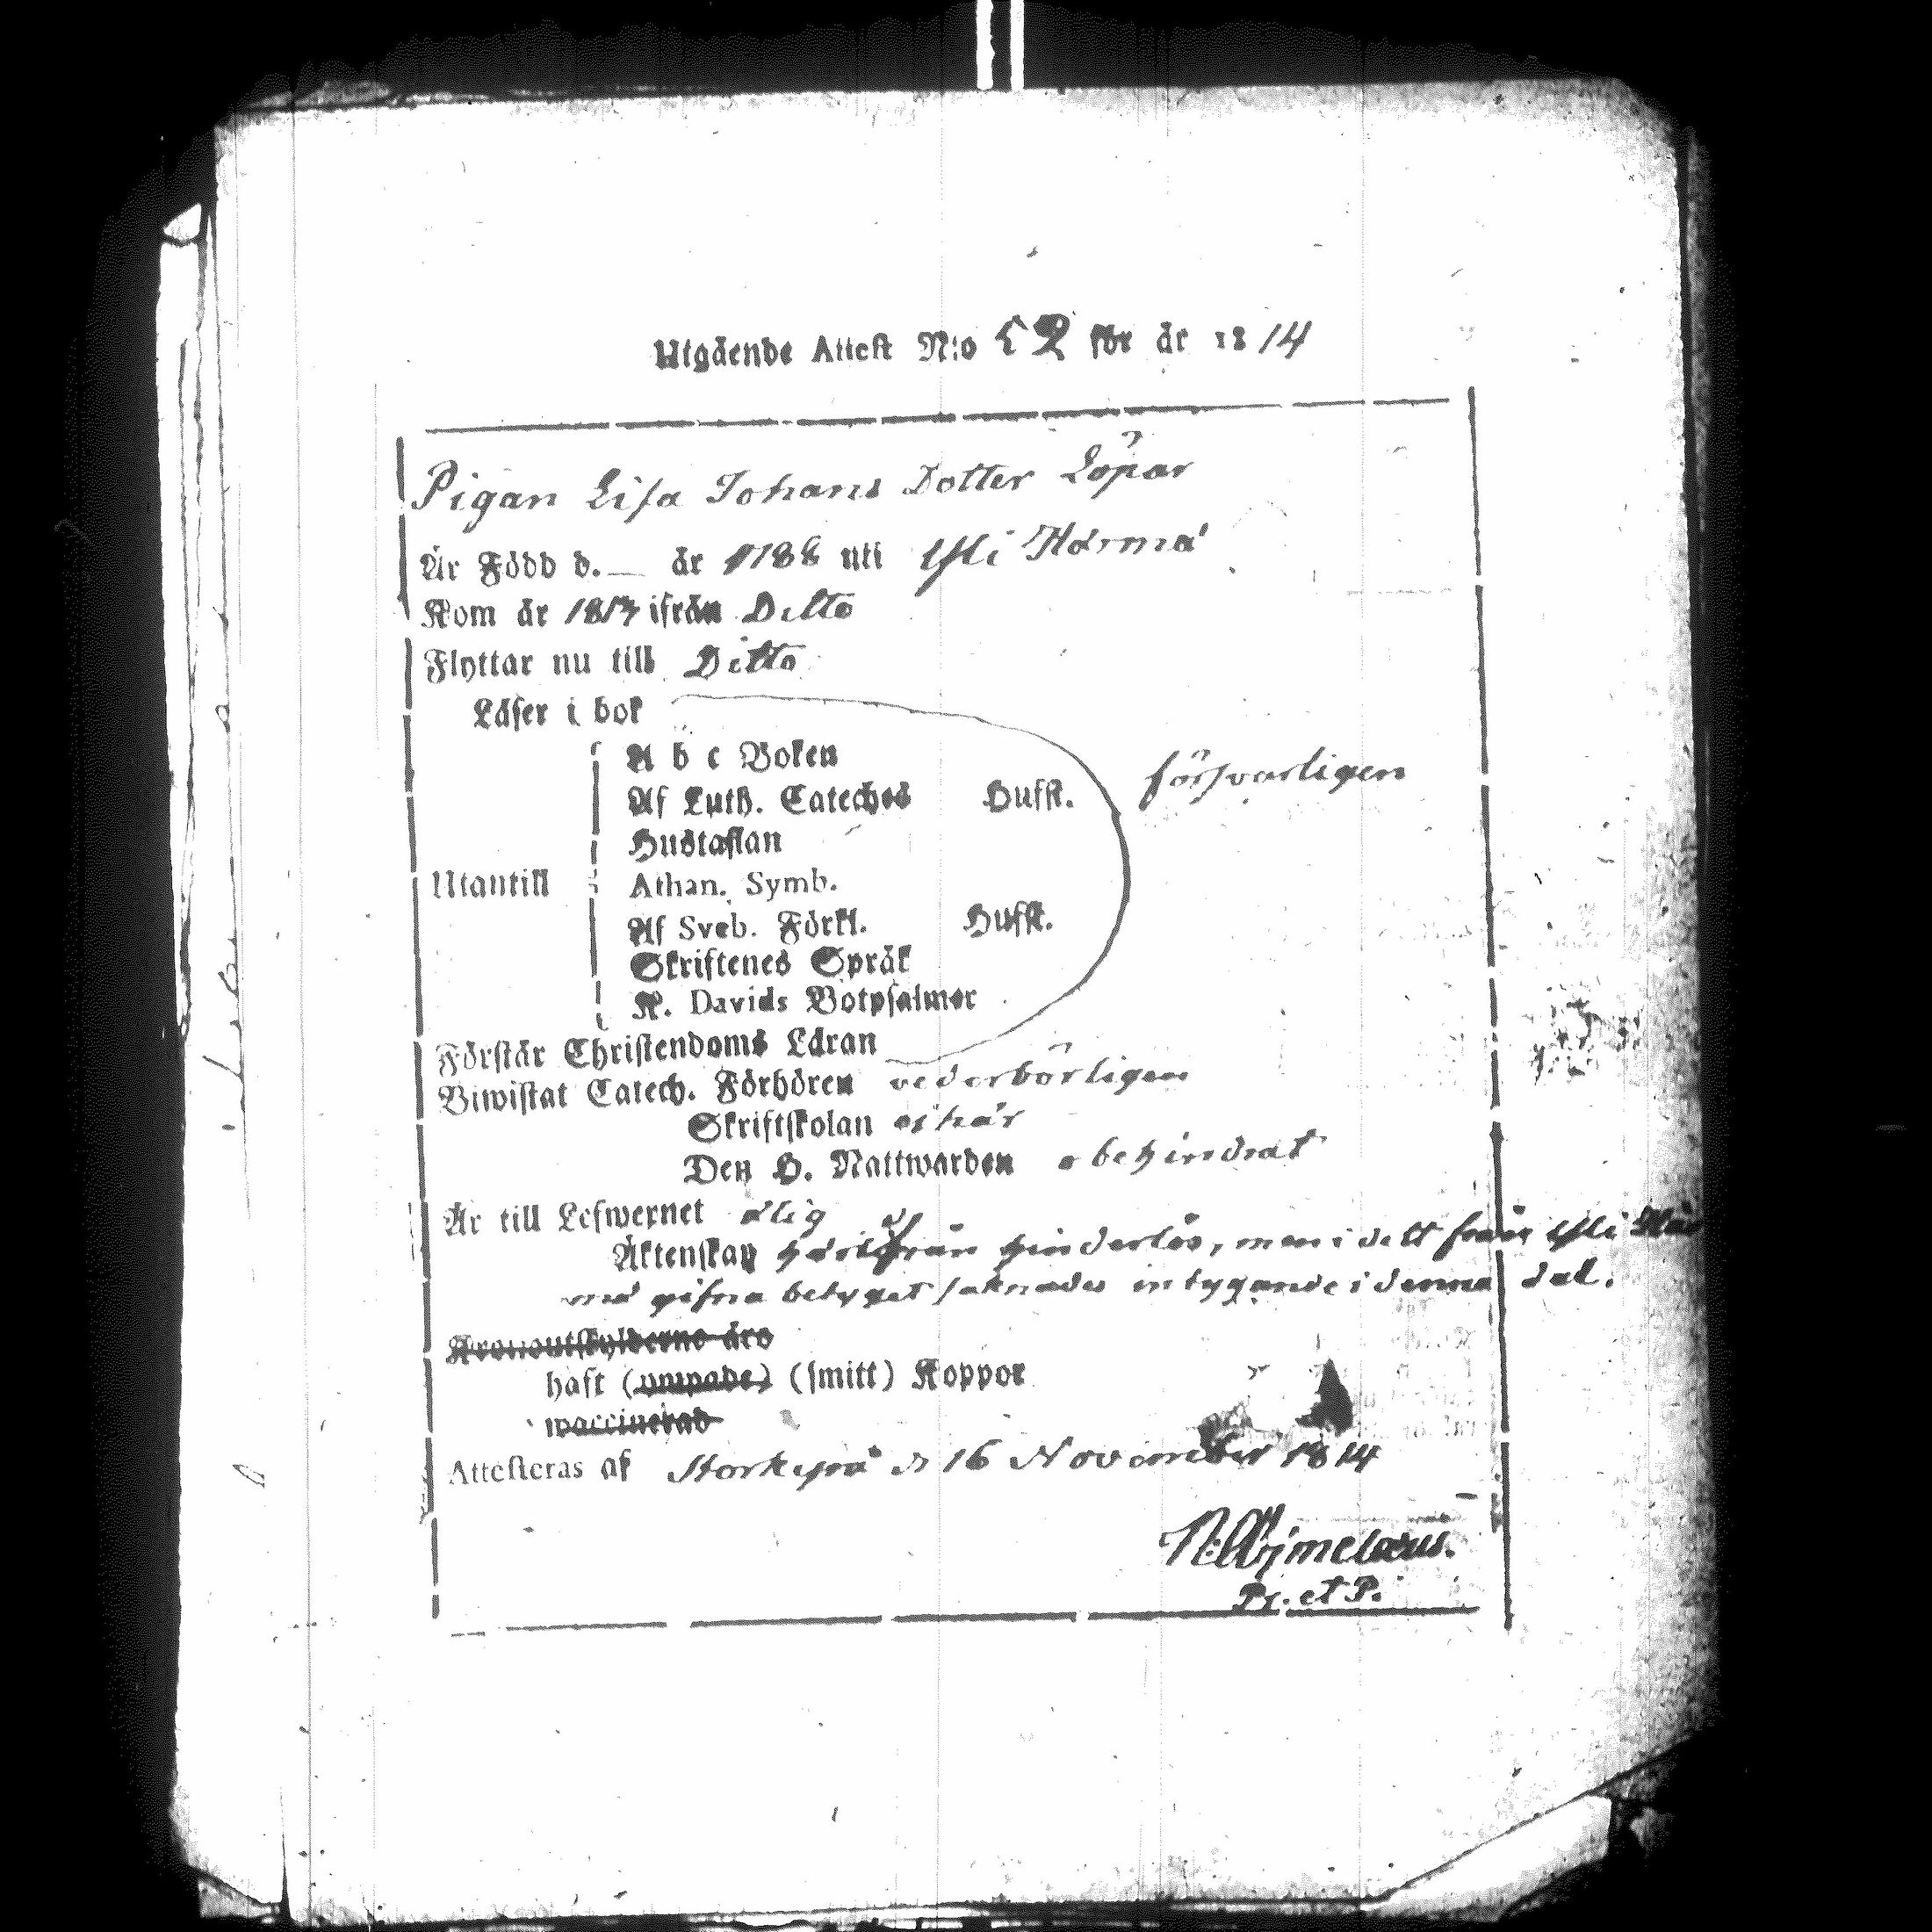 Utgående Attest N:o 52 för år 1814
Pigan Lisa Johans Dotter Löpar
Är Född d. — år 1788 uti Ylli Härmä
Kom år 1813 ifrån Ditto
Flyttar nu till Ditto
Läser i bok
A b c Boken
Af Luth. Cateches Hufst. försvarligen
Hustaflan
Utantill Athan. Symb.
Af Sveb. Förkl. Hufst.
Skriftenes Språk
K. Davids Botpsalmer
Förstår Christendoms Läran
Biwistat Catech. Förhören vederbörligen
Skriftskolan ej här
Den H. Nattwarden obehindrat
Är till Lefwernet ärlig
Äktenskap härifrån hinderlös, men i dett från Ylli Här
mä gifna betyget saknades intygande i denna del.
Kronoutskylderne äro
haft (umpade) (smitt) Koppor
waccinerad
Attesteras af Storkyrå d 16 November 1814
Pr. et P.